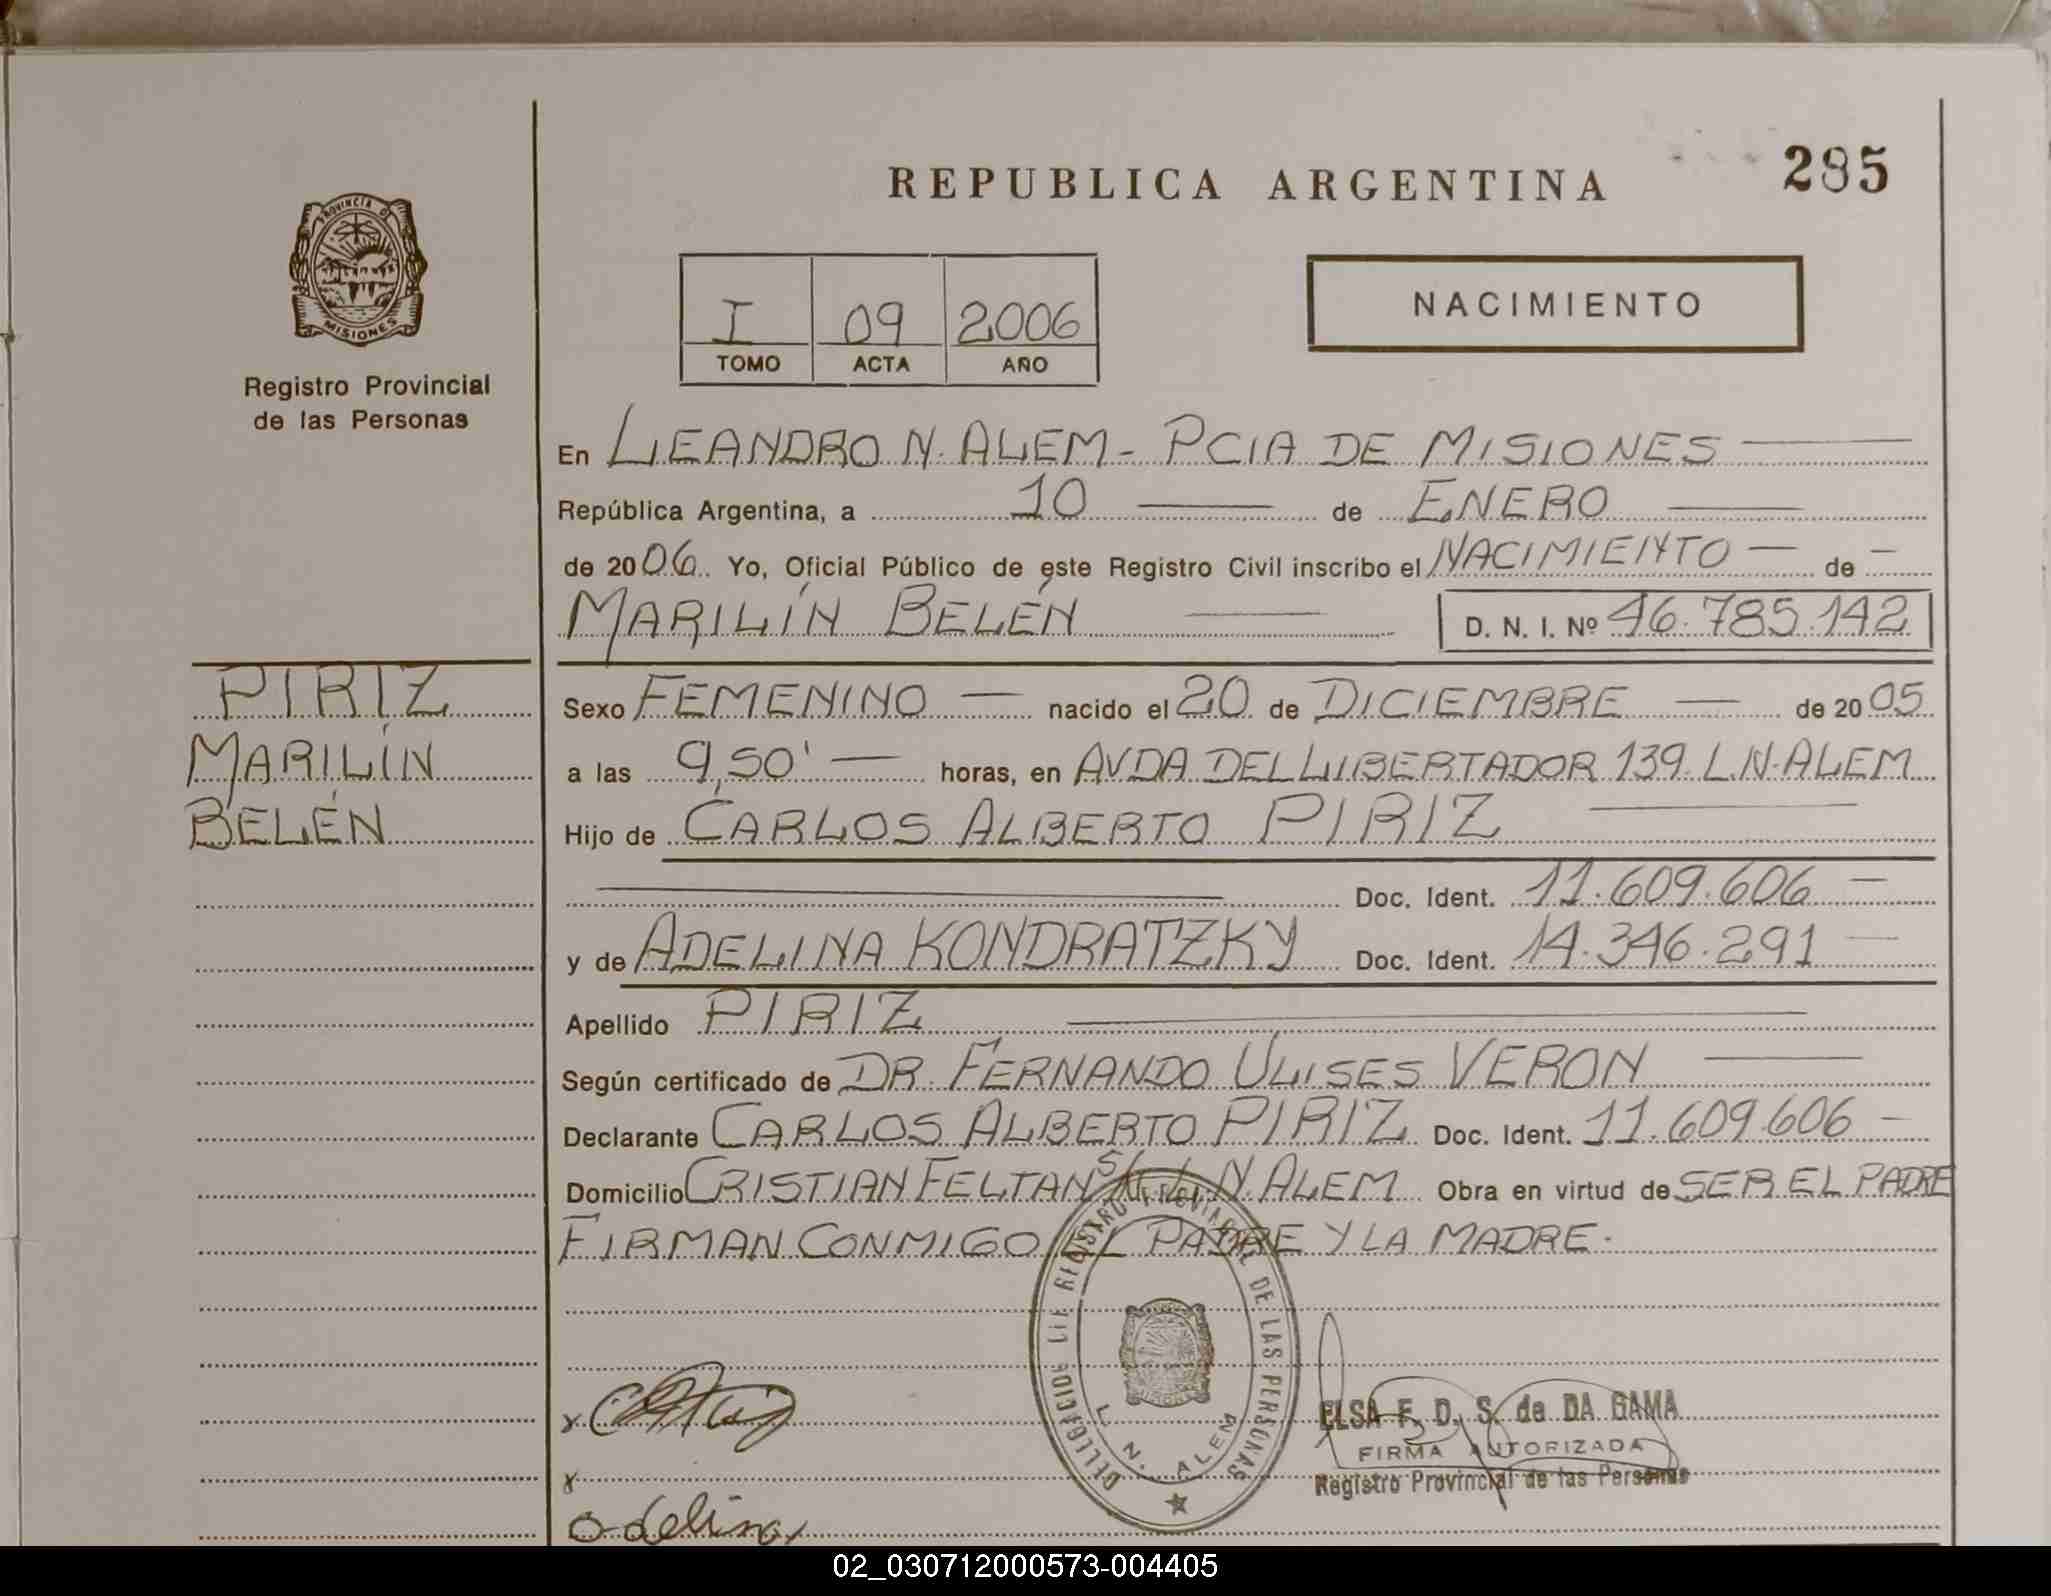 REPUBLICA ARGENTINA
285
PROVINCIA DE
MISIONES
Registro Provincial
de las Personas
I 09 2006
TOMO ACTA AÑO
NACIMIENTO
En LEANDRO N. ALEM - PCIA DE MISIONES
República Argentina, a 10 de ENERO
de 2006. Yo, Oficial Público de este Registro Civil inscribo el NACIMIENTO — de —
MARILÍN BELÉN D. N. I. Nº 46.785.142
PIRIZ
MARILÍN
BELÉN
Sexo FEMENINO — nacido el 20 de DICIEMBRE — de 2005
a las 9,50' — horas, en AVDA DEL LIBERTADOR 139. L.N.ALEM
Hijo de CARLOS ALBERTO PIRIZ
Doc. Ident. 11.609.606 —
y de ADELINA KONDRATZKY Doc. Ident. 14.346.291 —
Apellido PIRIZ
Según certificado de DR. FERNANDO ULISES VERON
Declarante CARLOS ALBERTO PIRIZ Doc. Ident. 11.609.606 —
Domicilio CRISTIAN FELTAN S/N L.N.ALEM Obra en virtud de SER EL PADRE
FIRMAN CONMIGO EL PADRE Y LA MADRE.
REGISTRO PROVINCIAL DE LAS PERSONAS
L. N. ALEM
ELSA F. D. S. de DA GAMA
FIRMA AUTORIZADA
Registro Provincial de las Personas
Adelina
02_030712000573-004405